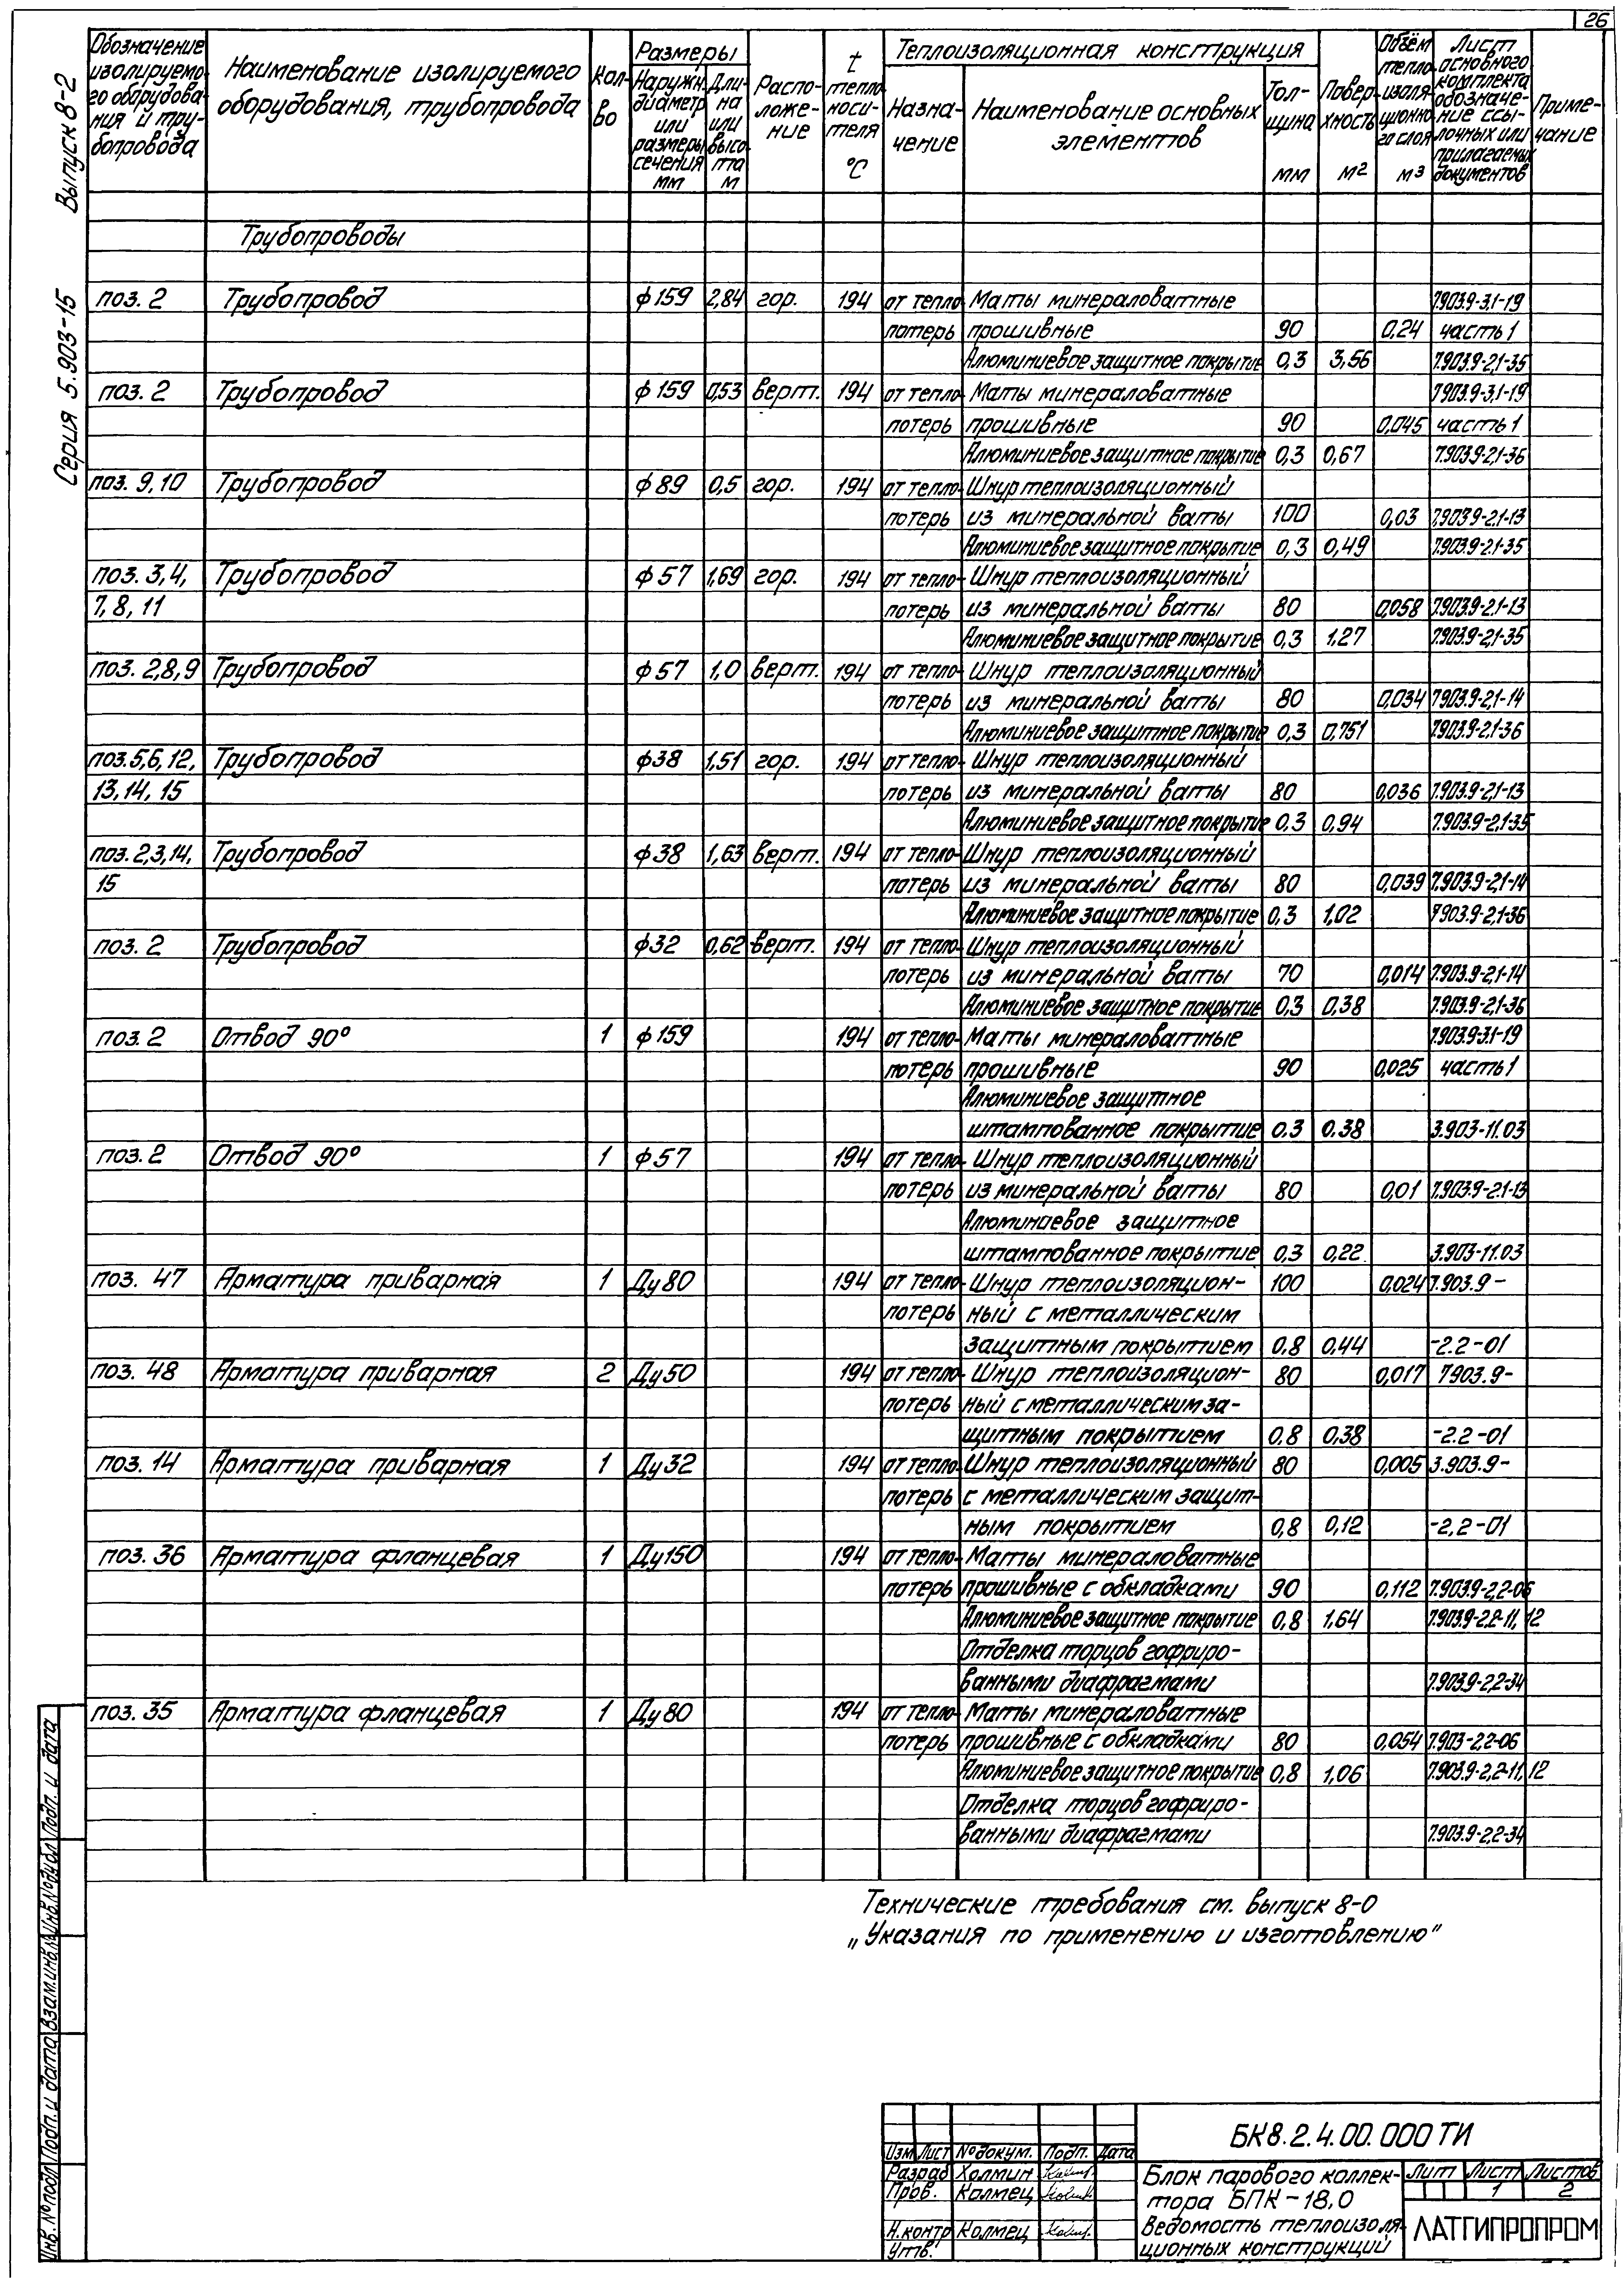 26
Серия 5.903-15 Выпуск 8-2
Обозначение изолируемо-го оборудова-ния и тру-бопровода
Наименование изолируемого оборудования, трубопровода
Кол-во
Размеры
Наружн. диаметр или размеры сечения мм
Дли-на или высо-та м
Распо-ложе-ние
t тепло-носи-теля °С
Теплоизоляционная конструкция
Назна-чение
Наименование основных элементов
Тол-щина мм
Повер-хность м²
Объём тепло-изоля-ционно-го слоя м³
Лист основного комплекта обозначе-ние ссы-лочных или прилагаемых документов
Приме-чание
Трубопроводы
поз. 2 Трубопровод ф159 2,84 гор. 194 от тепло- Маты минераловатные 7.903.9-3.1-19
потерь прошивные 90 0,24 часть 1
Алюминиевое защитное покрытие 0,3 3,56 7.903.9-2.1-35
поз. 2 Трубопровод ф159 0,53 верт. 194 от тепло- Маты минераловатные 7.903.9-3.1-19
потерь прошивные 90 0,045 часть 1
Алюминиевое защитное покрытие 0,3 0,67 7.903.9-2.1-36
поз. 9,10 Трубопровод ф89 0,5 гор. 194 от тепло- Шнур теплоизоляционный
потерь из минеральной ваты 100 0,03 7.903.9-2.1-13
Алюминиевое защитное покрытие 0,3 0,49 7.903.9-2.1-35
поз. 3,4, Трубопровод ф57 1,69 гор. 194 от тепло- Шнур теплоизоляционный
7, 8, 11 потерь из минеральной ваты 80 0,058 7.903.9-2.1-13
Алюминиевое защитное покрытие 0,3 1,27 7.903.9-2.1-35
поз. 2,8,9 Трубопровод ф57 1,0 верт. 194 от тепло- Шнур теплоизоляционный
потерь из минеральной ваты 80 0,034 7.903.9-2.1-14
Алюминиевое защитное покрытие 0,3 0,751 7.903.9-2.1-36
поз.5,6,12, Трубопровод ф38 1,51 гор. 194 от тепло- Шнур теплоизоляционный
13, 14, 15 потерь из минеральной ваты 80 0,036 7.903.9-2.1-13
Алюминиевое защитное покрытие 0.3 0,94 7.903.9-2.1-35
поз. 2,3,14, Трубопровод ф38 1,63 верт. 194 от тепло- Шнур теплоизоляционный
15 потерь из минеральной ваты 80 0,039 7.903.9-2.1-14
Алюминиевое защитное покрытие 0,3 1,02 7.903.9-2.1-36
поз. 2 Трубопровод ф32 0,62 верт. 194 от тепло- Шнур теплоизоляционный
потерь из минеральной ваты 70 0,014 7.903.9-2.1-14
Алюминиевое защитное покрытие 0,3 0,38 7.903.9-2.1-36
поз. 2 Отвод 90° 1 ф159 194 от тепло- Маты минераловатные 7.903.9-3.1-19
потерь прошивные 90 0,025 часть 1
Алюминиевое защитное
штампованное покрытие 0.3 0.38 3.903-11.03
поз. 2 Отвод 90° 1 ф57 194 от тепло- Шнур теплоизоляционный
потерь из минеральной ваты 80 0,01 7.903.9-2.1-13
Алюминиевое защитное
штампованное покрытие 0,3 0,22 3.903-11.03
поз. 47 Арматура приварная 1 Ду80 194 от тепло- Шнур теплоизоляцион- 100 0,024 7.903.9-
потерь ный с металлическим
защитным покрытием 0,8 0,44 -2.2-01
поз. 48 Арматура приварная 2 Ду50 194 от тепло- Шнур теплоизоляцион- 80 0,017 7903.9-
потерь ный с металлическим за-
щитным покрытием 0,8 0,38 -2.2-01
поз. 14 Арматура приварная 1 Ду32 194 от тепло- Шнур теплоизоляционный 80 0,005 3.903.9-
потерь с металлическим защит-
ным покрытием 0,8 0,12 -2,2-01
поз. 36 Арматура фланцевая 1 Ду150 194 от тепло- Маты минераловатные
потерь прошивные с обкладками 90 0,112 7.903.9-2.2-06
Алюминиевое защитное покрытие 0,8 1,64 7.903.9-2.2-11, 12
Отделка торцов гофриро-
ванными диафрагмами 7.903.9-2.2-34
поз. 35 Арматура фланцевая 1 Ду80 194 от тепло- Маты минераловатные
потерь прошивные с обкладками 80 0,054 7.903-2.2-06
Алюминиевое защитное покрытие 0,8 1,06 7.903.9-2,2-11, 12
Отделка торцов гофриро-
ванными диафрагмами 7.903.9-2.2-34
Технические требования см. выпуск 8-0
„Указания по применению и изготовлению"
Инв. № подл Подп. и дата Взам.инв.№ Инв.№ дубл Подп. и дата
БК8.2.4.00.000 ТИ
Изм Лист № докум. Подп. Дата
Разраб Холмин
Пров. Колмец
Н.контр Колмец
Утв.
Блок парового коллек-
тора БПК-18,0
Ведомость теплоизоля-
ционных конструкций
Лит Лист Листов
1 2
ЛАТГИПРОПРОМ